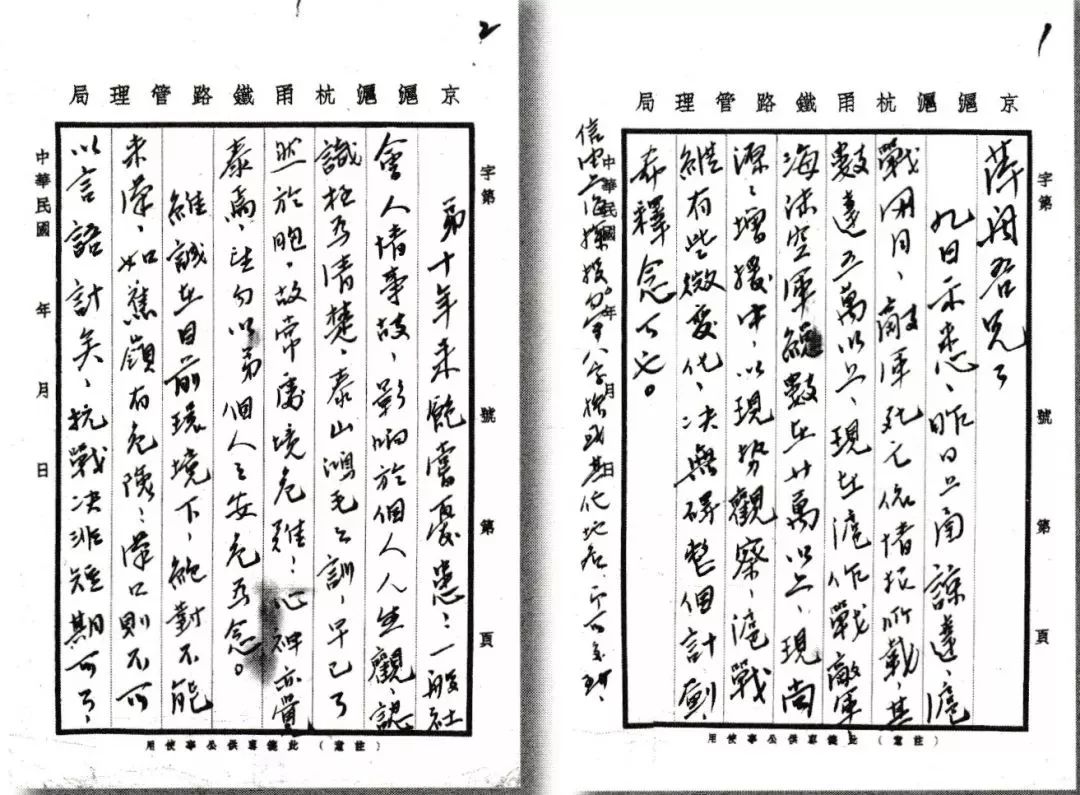 1
京滬滬杭甬鐵路管理局
字第 號第 頁
萍舟吾兄：
九日示悉、昨日上函諒達、滬
戰兩月、敵軍死亡依情报所載、其
數達五萬以上、現在滬作戰敵軍
海陸空軍總數在廿萬以上、現尚
源源增援中、以現势觀察、滬戰
縱有些微變化、决無碍整個計劃、
希釋念可也。
中華民國 年 月 日
信内上海探投勿寫八字橋或其他地名、即可
（注意）此箋專供公事使用
2
京滬滬杭甬鐵路管理局
字第 號第 頁
弟十年來飽嘗憂患：一般社
會人情事故、影响於個人人生觀、認
識极為清楚、泰山鴻毛之訓、早已了
然於胞、故常處境危难：心神亦覺
泰焉、望勿以弟個人之安危為念。
維誠在目前環境下、絕對不能
来漢、如蕉嶺有危險；漢口則不可
以言語計矣、抗戰决非短期可了、
中華民國 年 月 日
（注意）此箋專供公事使用